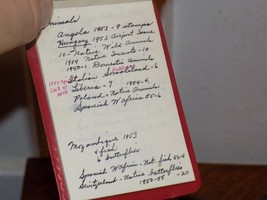 Animals
Angola 1953 - 9 stamps
Hungary 1953 Airport Issue
10 - Native Wild Animals
1954 Native Insects - 10
1950-1 Domestic Animals
Italian Somaliland - 6
Liberia - 7 1954-4
Poland - Native Animals
Spanish W Africa 55-6
Mozambique 1953
4 fish
6 butterflies
Spanish W Africa - Nat. fish 53-4
Switzerland - Native Butterflies
1950-55 - 20